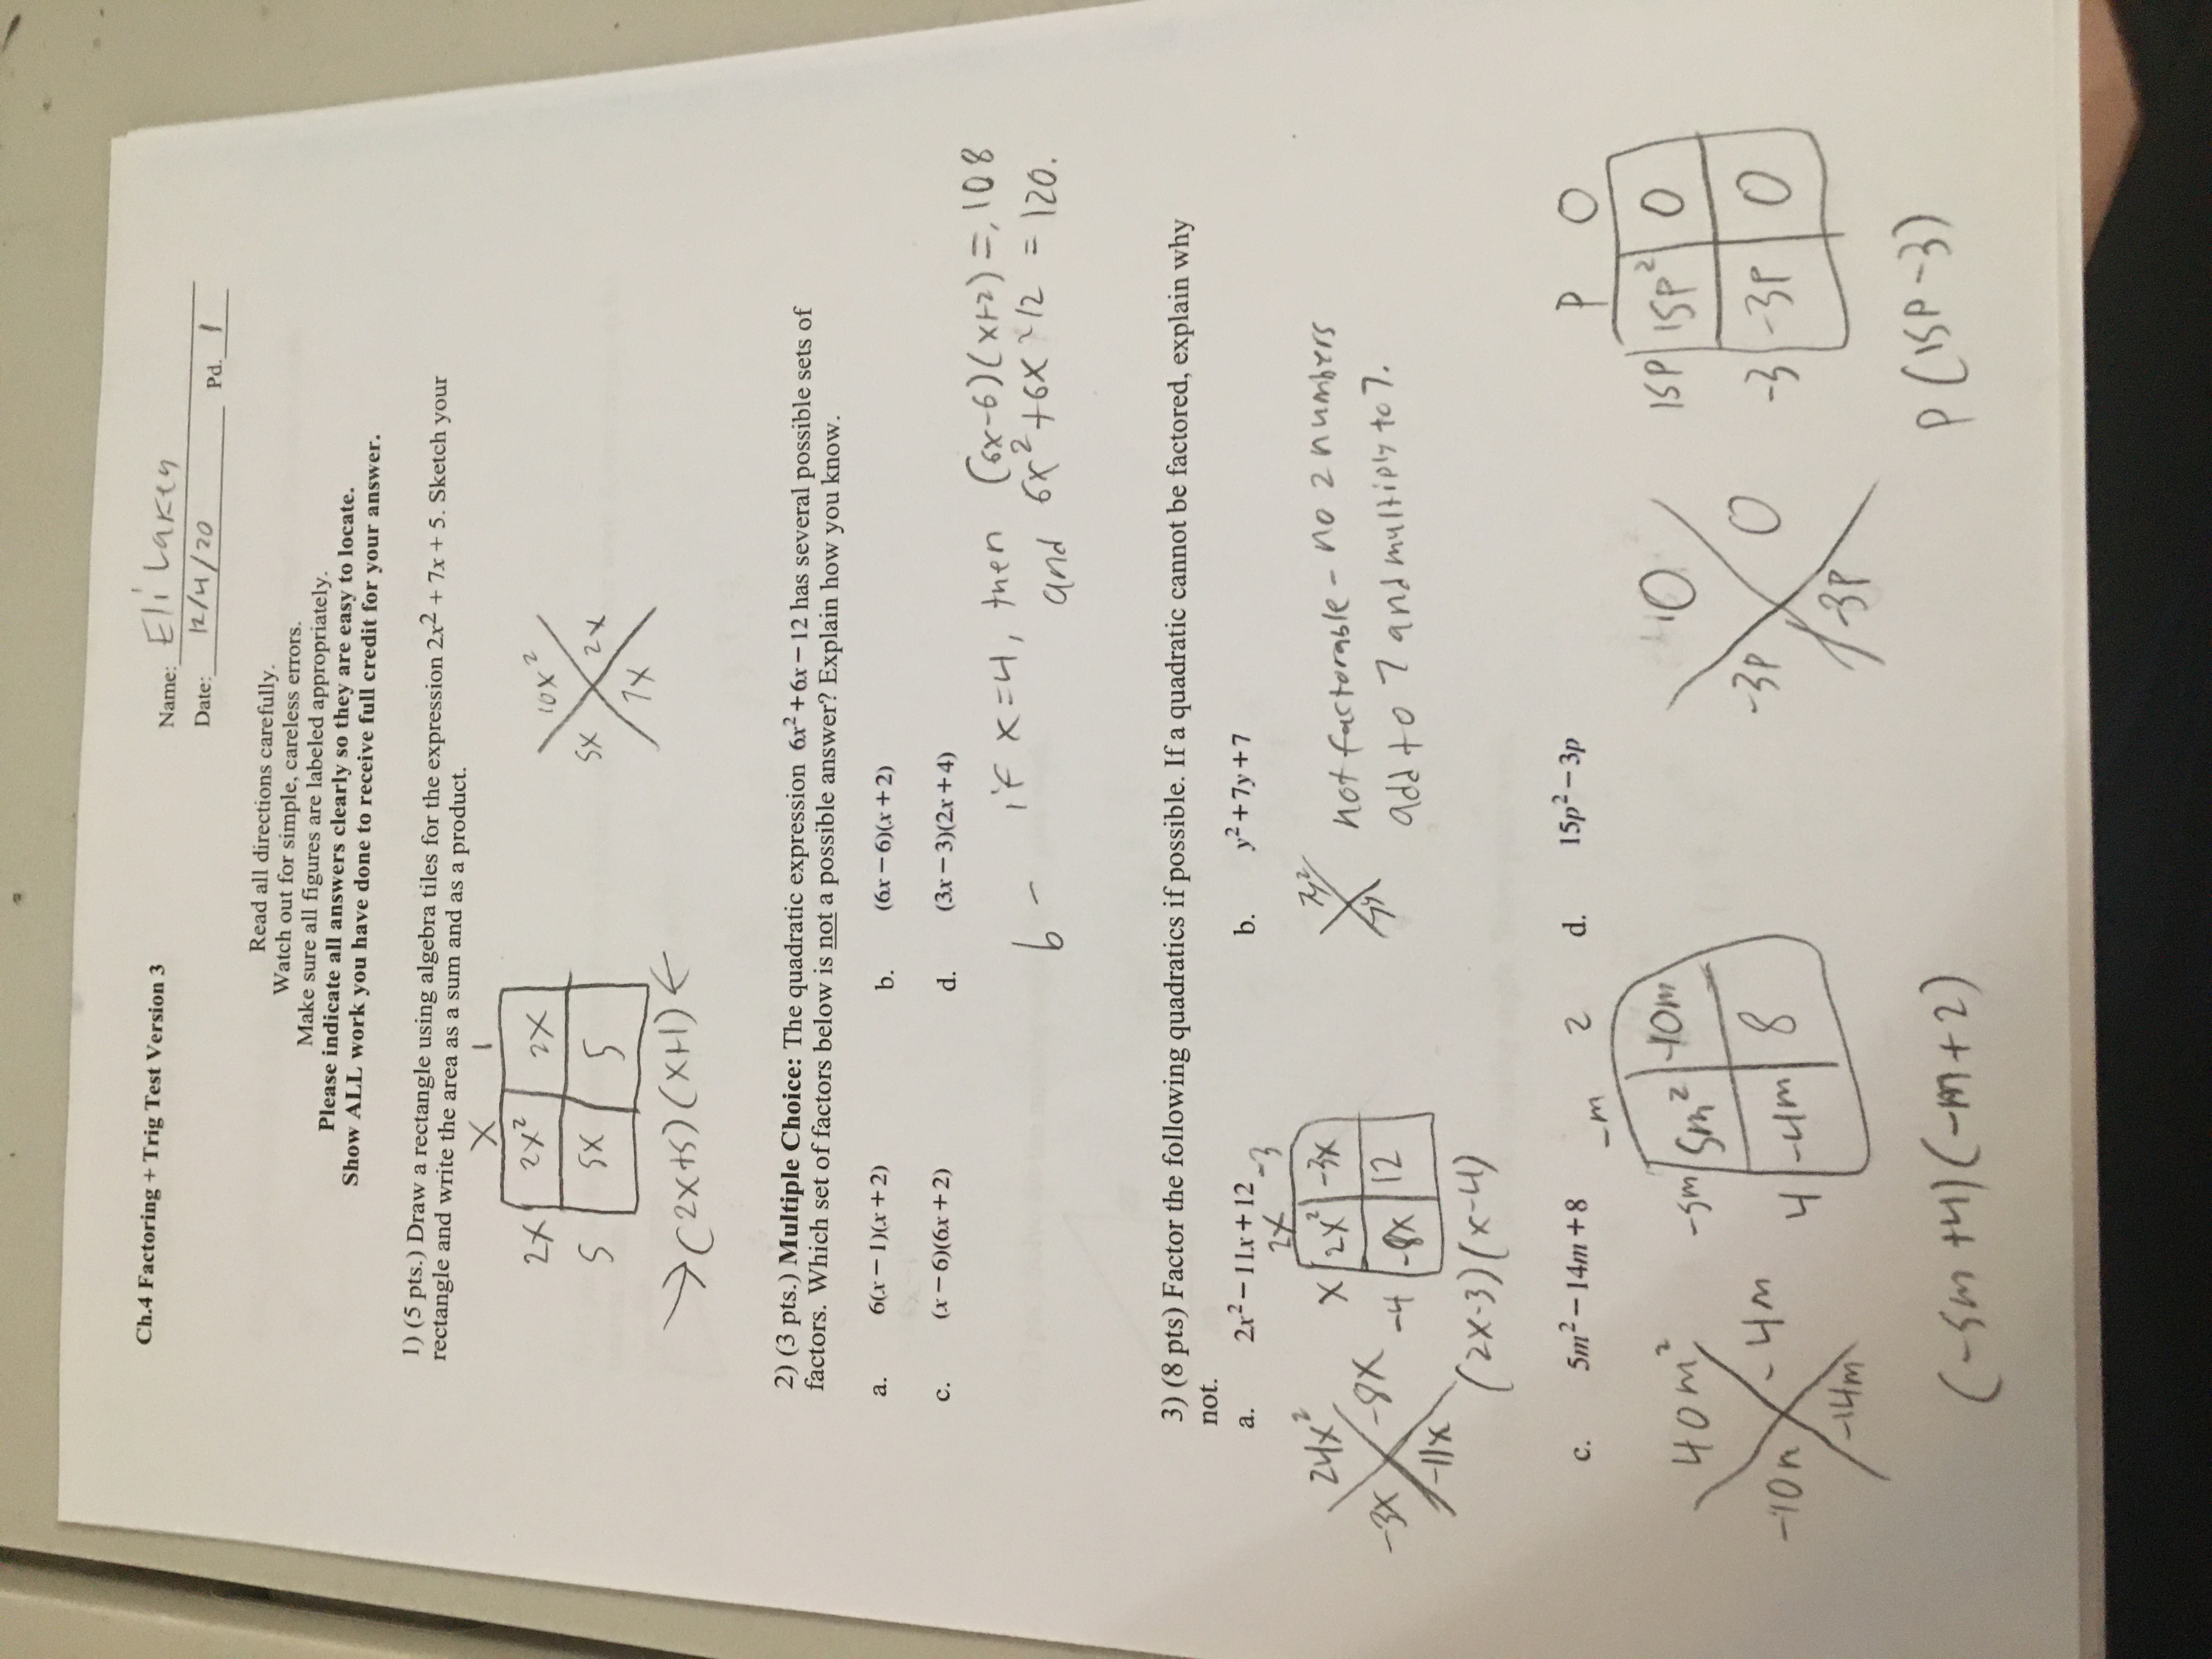 Ch.4 Factoring + Trig Test Version 3
Name: Eli Lakey
Date: 12/4/20 Pd. 1
Read all directions carefully.
Watch out for simple, careless errors.
Make sure all figures are labeled appropriately.
Please indicate all answers clearly so they are easy to locate.
Show ALL work you have done to receive full credit for your answer.
1) (5 pts.) Draw a rectangle using algebra tiles for the expression 2x² + 7x + 5. Sketch your
rectangle and write the area as a sum and as a product.
x 1
2x 2x² 2x
5 5x 5
10x²
5x 2x
7x
→(2x+5)(x+1)←
2) (3 pts.) Multiple Choice: The quadratic expression 6x²+6x−12 has several possible sets of
factors. Which set of factors below is not a possible answer? Explain how you know.
a. 6(x−1)(x+2) b. (6x−6)(x+2)
c. (x−6)(6x+2) d. (3x−3)(2x+4)
b - if x=4, then (6x-6)(x+2)=,108
and 6x²+6x-12 = 120.
3) (8 pts) Factor the following quadratics if possible. If a quadratic cannot be factored, explain why
not.
a. 2x²−11x+12 b. y²+7y+7
2x -3
x 2x² -3x
-4 -8x 12
24x²
-3x -8x
-11x
(2x-3)(x-4)
7y²
7y
not factorable - no 2 numbers
add to 7 and multiply to 7.
c. 5m²−14m+8 d. 15p²−3p
-m 2
-5m 5m² -10m
4 -4m 8
40m²
-10m -4m
-14m
(-5m+4)(-m+2)
0
-3p 0
-3p
p 0
15p 15p² 0
-3 -3p 0
p(15p-3)